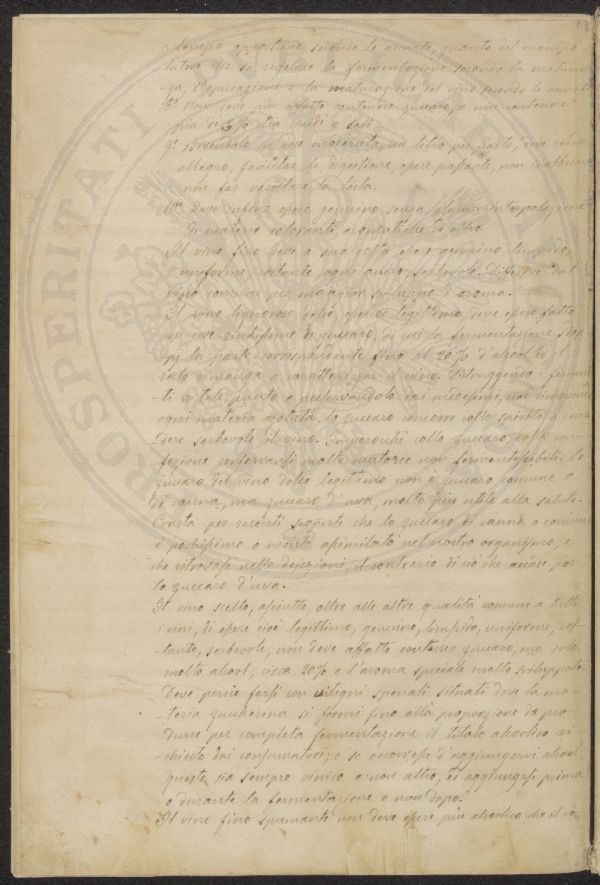 tempo opportuno secondo le annate, quanto del manipo-
latore che sa regolare la fermentazione secondo la matura-
za, l'epurazione e la maturazione del vino secondo le annate
8º Non deve più affatto contenere zuccaro, e non contenere
più di 6‰ tra acidi e sali.
9º Bevendolo in dose moderata, un litro per pasto, deve render
allegro, facilitar la digestione, essere passante, non inebbriare
non far vacillare la testa.
10º Deve infine essere genuino senza alcuna interpolazione
di materie coloranti, o aromatiche od altro.
Il vino fino deve a sua volta essere genuino limpido,
uniforme, costante ogni anno, serbevole. Differire dal
vino comune per maggior sviluppo d'aroma.
Il vino liquoroso dolce, essendo legittimo, deve essere fatto
con uve ricchissime di zuccaro, di cui la fermentazione
la parte corrispondente fino al 20% d'alcool, ed il
resto rimanga a caratterizzare il vino. Distruggendo i fermen-
ti a tal punto e preservandolo dai medesimi, cioè rimovendo
ogni materia azotata, lo zuccaro concorre collo spirito a ren-
dere serbevole il vino. Imperocchè collo zuccaro, colla con-
fezione conservansi molte materie non fermentescibili. Lo
zuccaro del vino dolce legittimo non è zuccaro comune o
di canna, ma zuccaro d'uva, molto più utile alla salute.
Consta per recenti scoperte che lo zuccaro di canna o comune
è pochissimo o niente assimilato nel nostro organismo, e
che ritrovasi nelle dejezioni, il contrario di ciò che accade per
lo zuccaro d'uva.
Il vino scelto, asciutto, oltre alle altre qualità comuni a tutti
i vini, di essere cioè legittimo, genuino, limpido, uniforme, cos-
tante, serbevole, non deve affatto contener zuccaro, ma solo
molto alcool, circa 20% e l'aroma speciale molto sviluppato.
Deve perciò farsi con vitigni speciali situati dove la ma-
teria zuccherina si formi fino alla proporzione da pro-
durre per completa fermentazione il titolo alcoolico ri-
chiesto dai consumatori; e se occorresse d'aggiungervi alcool,
questo sia sempre vinico e non altro, ed aggiungasi prima
o durante la fermentazione e non dopo.
Il vino fino spumante non deve essere più alcoolico che il co-
PROSPERITATI